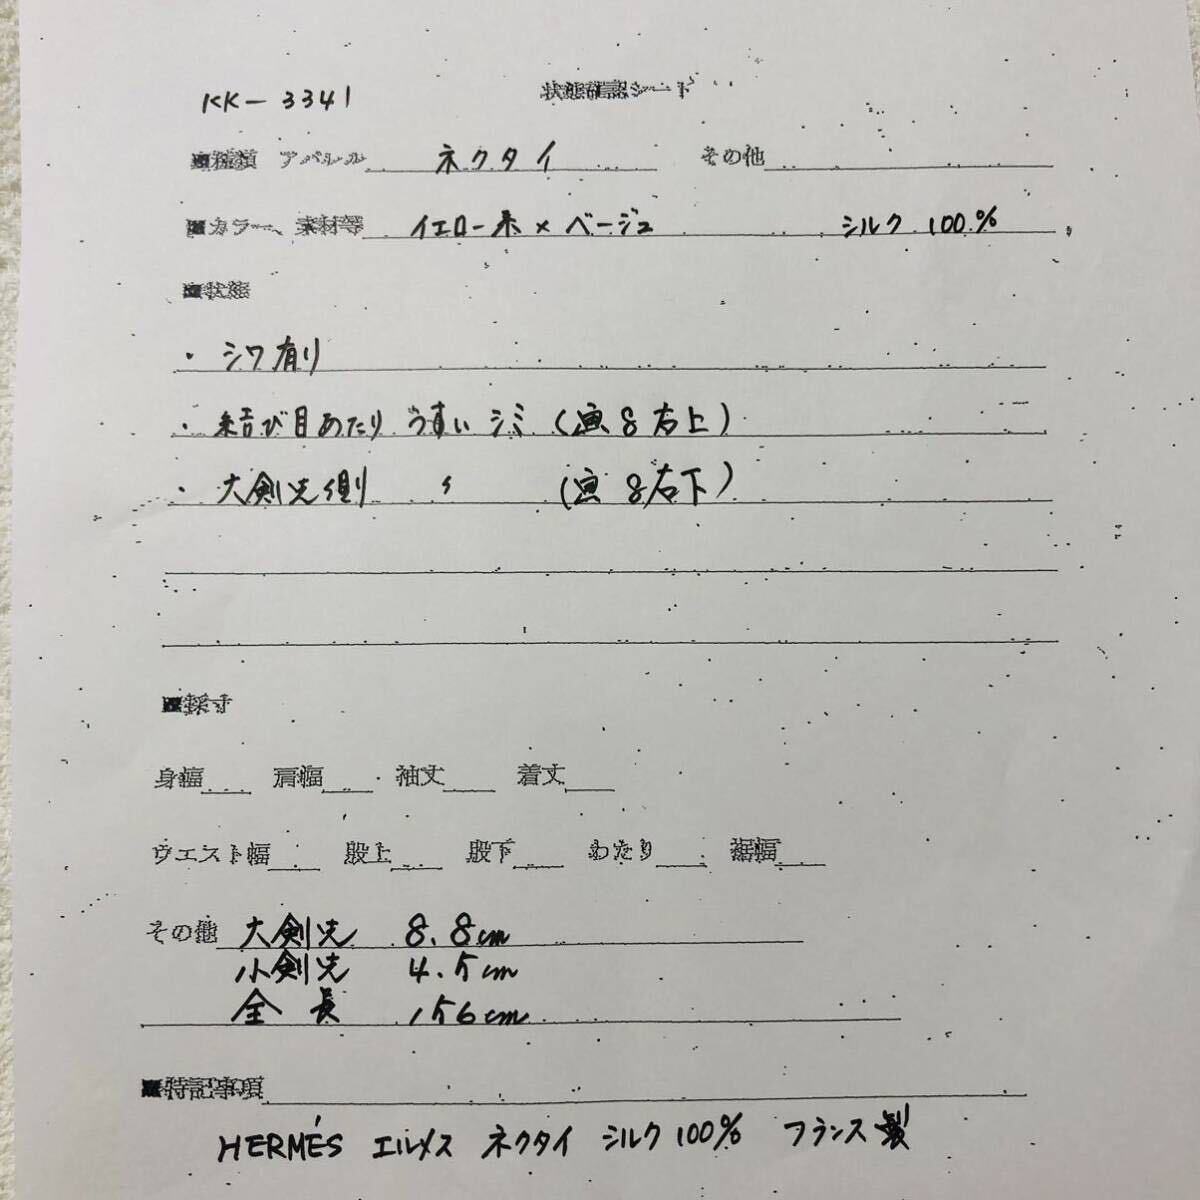 KK-3341
状態確認シート
■種類 アパレル ネクタイ その他
■カラー、素材等 イエロー系×ベージュ シルク100%
■状態
・シワ有り
・結び目あたり うすいシミ (画8右上)
・大剣先側 〃 (画8右下)
■採寸
身幅 肩幅 袖丈 着丈
ウエスト幅 股上 股下 わたり 裾幅
その他 大剣先 8.8cm
小剣先 4.5cm
全長 156cm
■特記事項
HERMÉS エルメス ネクタイ シルク100% フランス製